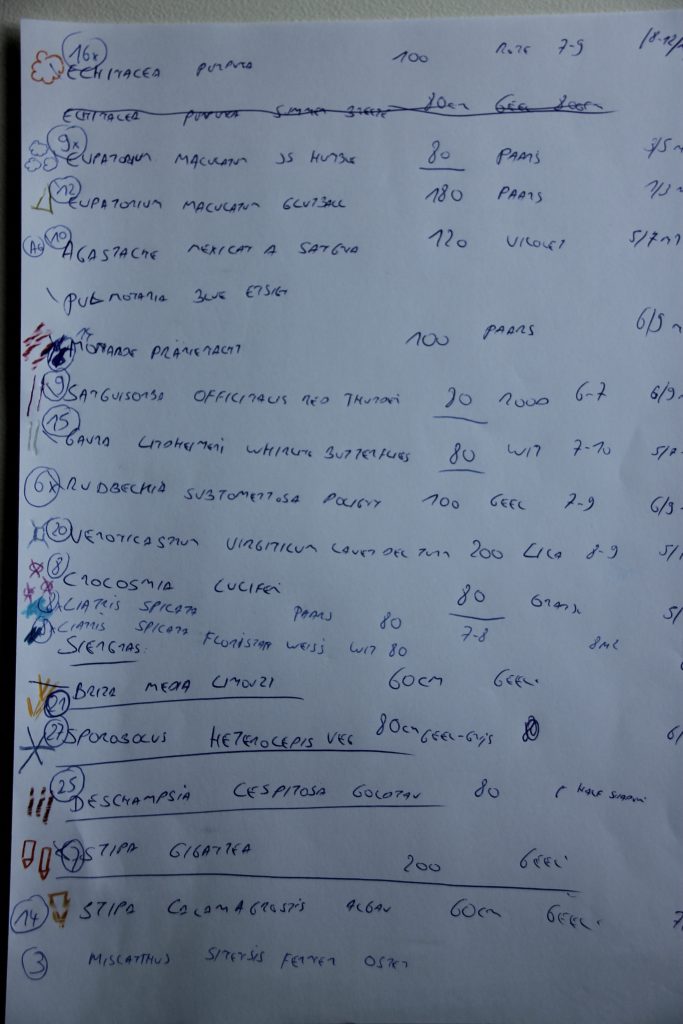 16x ECHINACEA PURPUREA 100 7-9
ECHINACEA 80cm GEEL
9x EUPATORIUM MACULATUM 80 PAARS
12 EUPATORIUM MACULATUM GLUTBALL 180 PAARS
AG 10 AGASTACHE MEXICANA SANGRIA 120 VIOLET
PULMONARIA BLUE ENSIGN
PRÄRIENACHT 100 PAARS 6/9
9 SANGUISORBA OFFICINALIS RED THUNDER 80 ROOD 6-7 6/9
15 GAURA LINDHEIMERI WHIRLING BUTTERFLIES 80 WIT 7-10
6x RUDBECKIA SUBTOMENTOSA 100 GEEL 7-9 6/9
20 VERONICASTRUM VIRGINICUM LAVENDELTURM 200 LILA 8-9
8 CROCOSMIA LUCIFER 80 ORANJE
LIATRIS SPICATA PAARS 80 7-8
LIATRIS SPICATA FLORISTAN WEISS WIT 80
SIERGRAS:
21 BRIZA MEDIA LIMOUZI 60CM GEEL
27 SPOROBOLUS HETEROLEPIS 80cm GEEL-GRIJS
25 DESCHAMPSIA CESPITOSA GOLDTAU 80
7 STIPA GIGANTEA 200 GEEL
14 STIPA CALAMAGROSTIS ALGAU 60CM GEEL
3 MISCANTHUS SINENSIS FERNER OSTEN